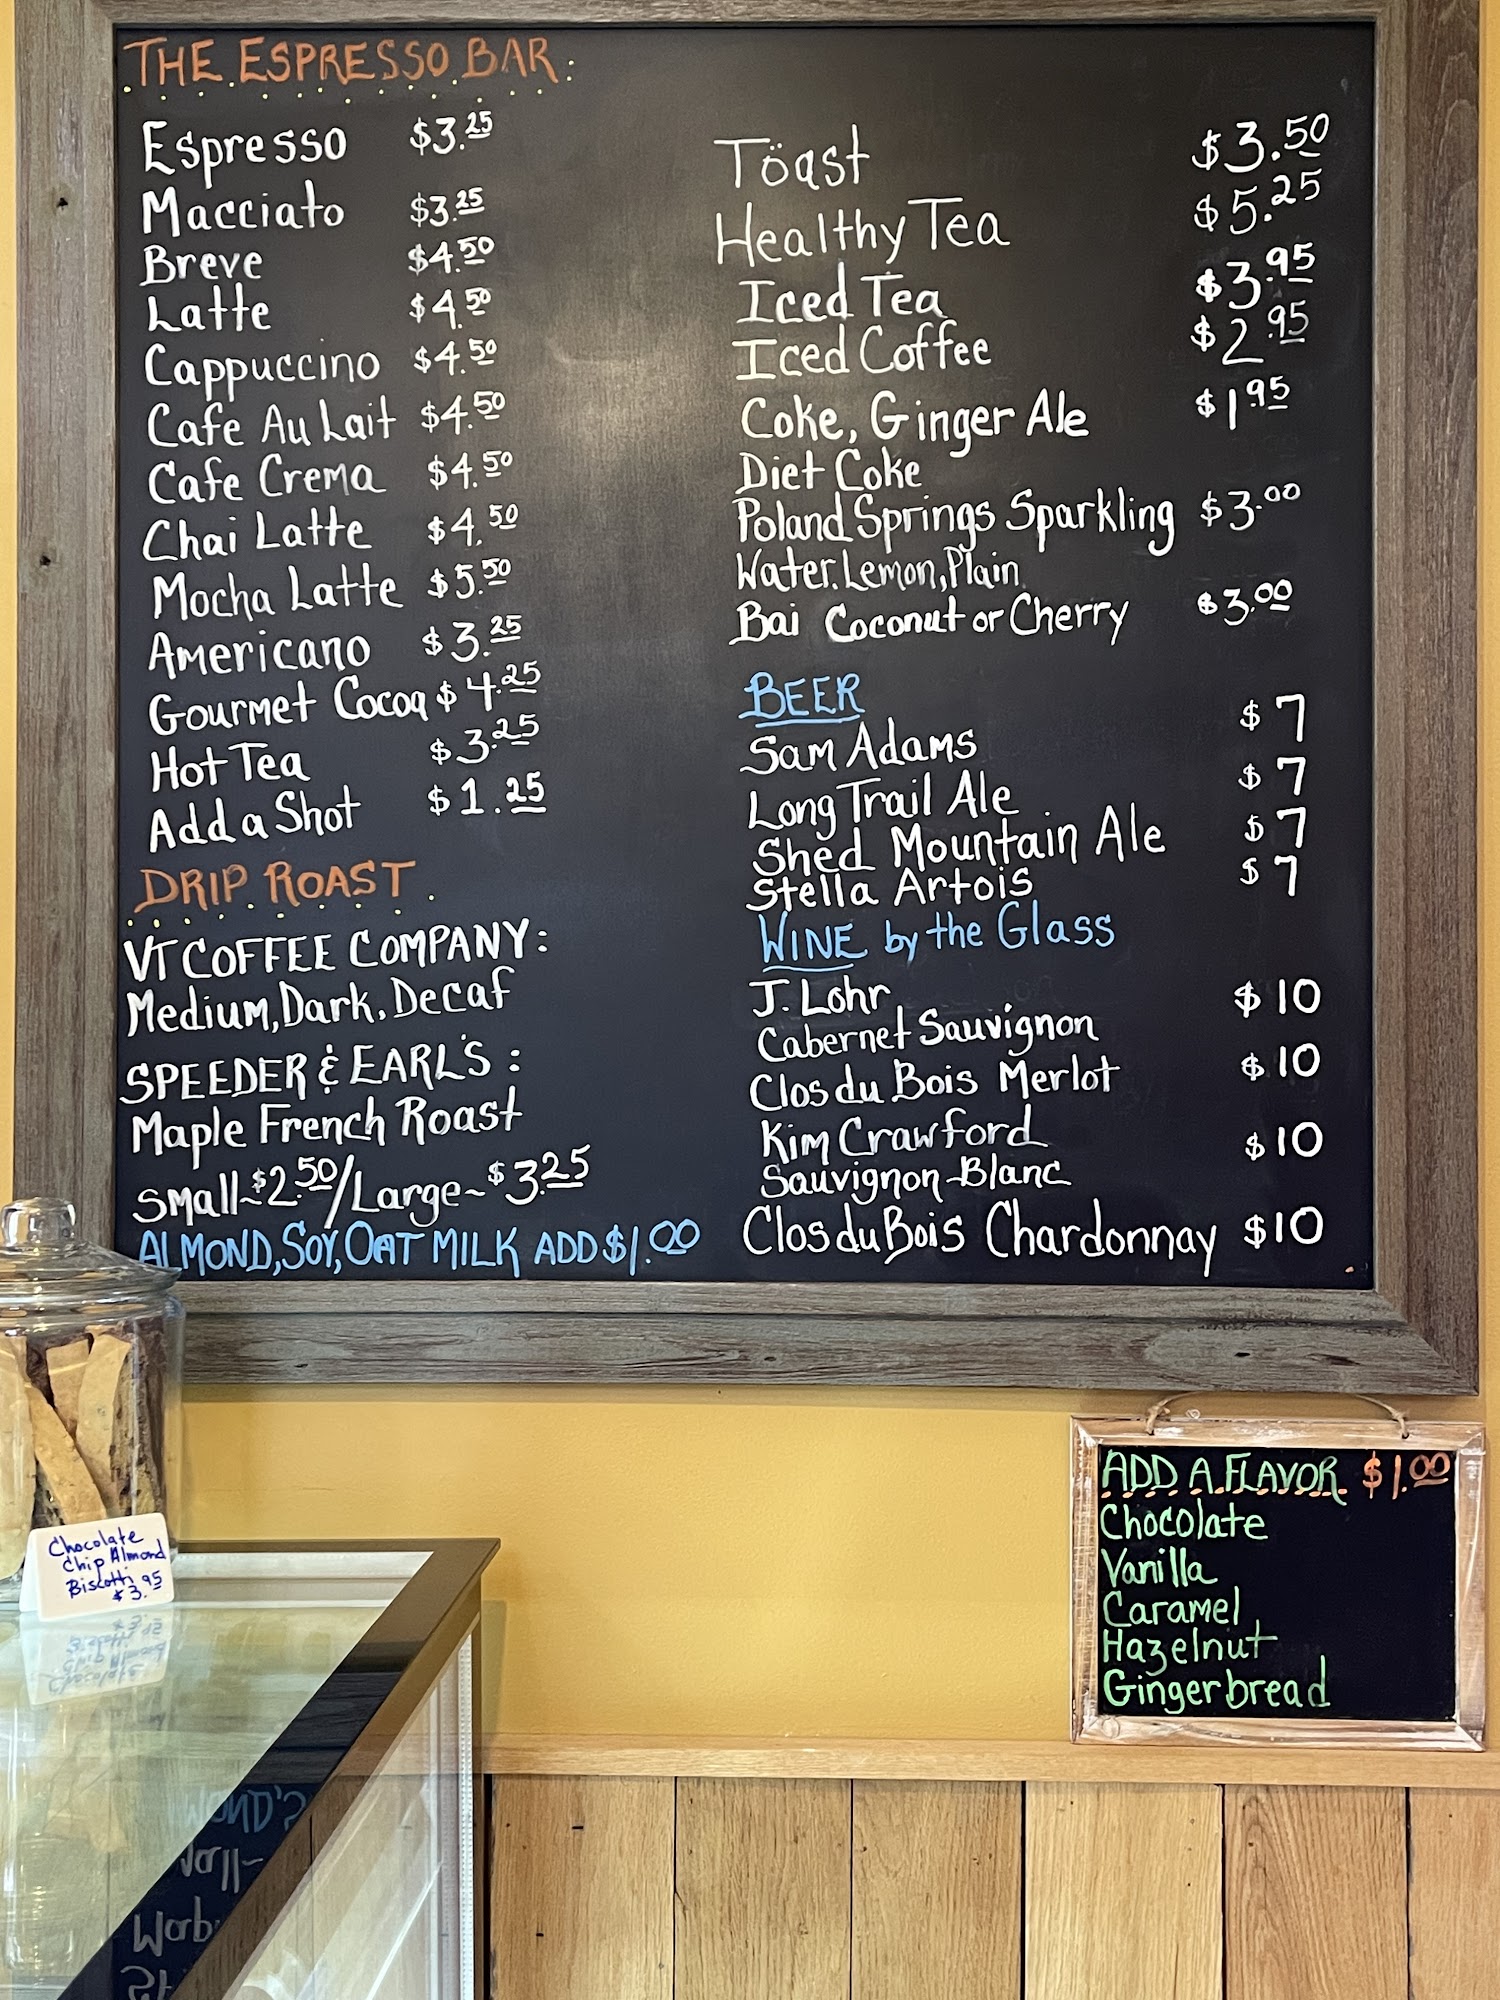 THE ESPRESSO BAR:
Espresso $3.25
Macciato $3.25
Breve $4.50
Latte $4.50
Cappuccino $4.50
Cafe Au Lait $4.50
Cafe Crema $4.50
Chai Latte $4.50
Mocha Latte $5.50
Americano $3.25
Gourmet Cocoa $4.25
Hot Tea $3.25
Add a Shot $1.25
DRIP ROAST
VT COFFEE COMPANY:
Medium, Dark, Decaf
SPEEDER & EARL'S:
Maple French Roast
Small~$2.50/Large~$3.25
ALMOND, SOY, OAT MILK ADD $1.00
Töast $3.50
Healthy Tea $5.25
Iced Tea $3.95
Iced Coffee $2.95
Coke, Ginger Ale $1.95
Diet Coke
Poland Springs Sparkling $3.00
Water. Lemon, Plain
Bai Coconut or Cherry $3.00
BEER
Sam Adams $7
Long Trail Ale $7
Shed Mountain Ale $7
Stella Artois $7
WINE by the Glass
J. Lohr $10
Cabernet Sauvignon
Clos du Bois Merlot $10
Kim Crawford $10
Sauvignon-Blanc
Clos du Bois Chardonnay $10
ADD A FLAVOR $1.00
Chocolate
Vanilla
Caramel
Hazelnut
Gingerbread
Chocolate
Chip Almond
Biscotti
$3.95